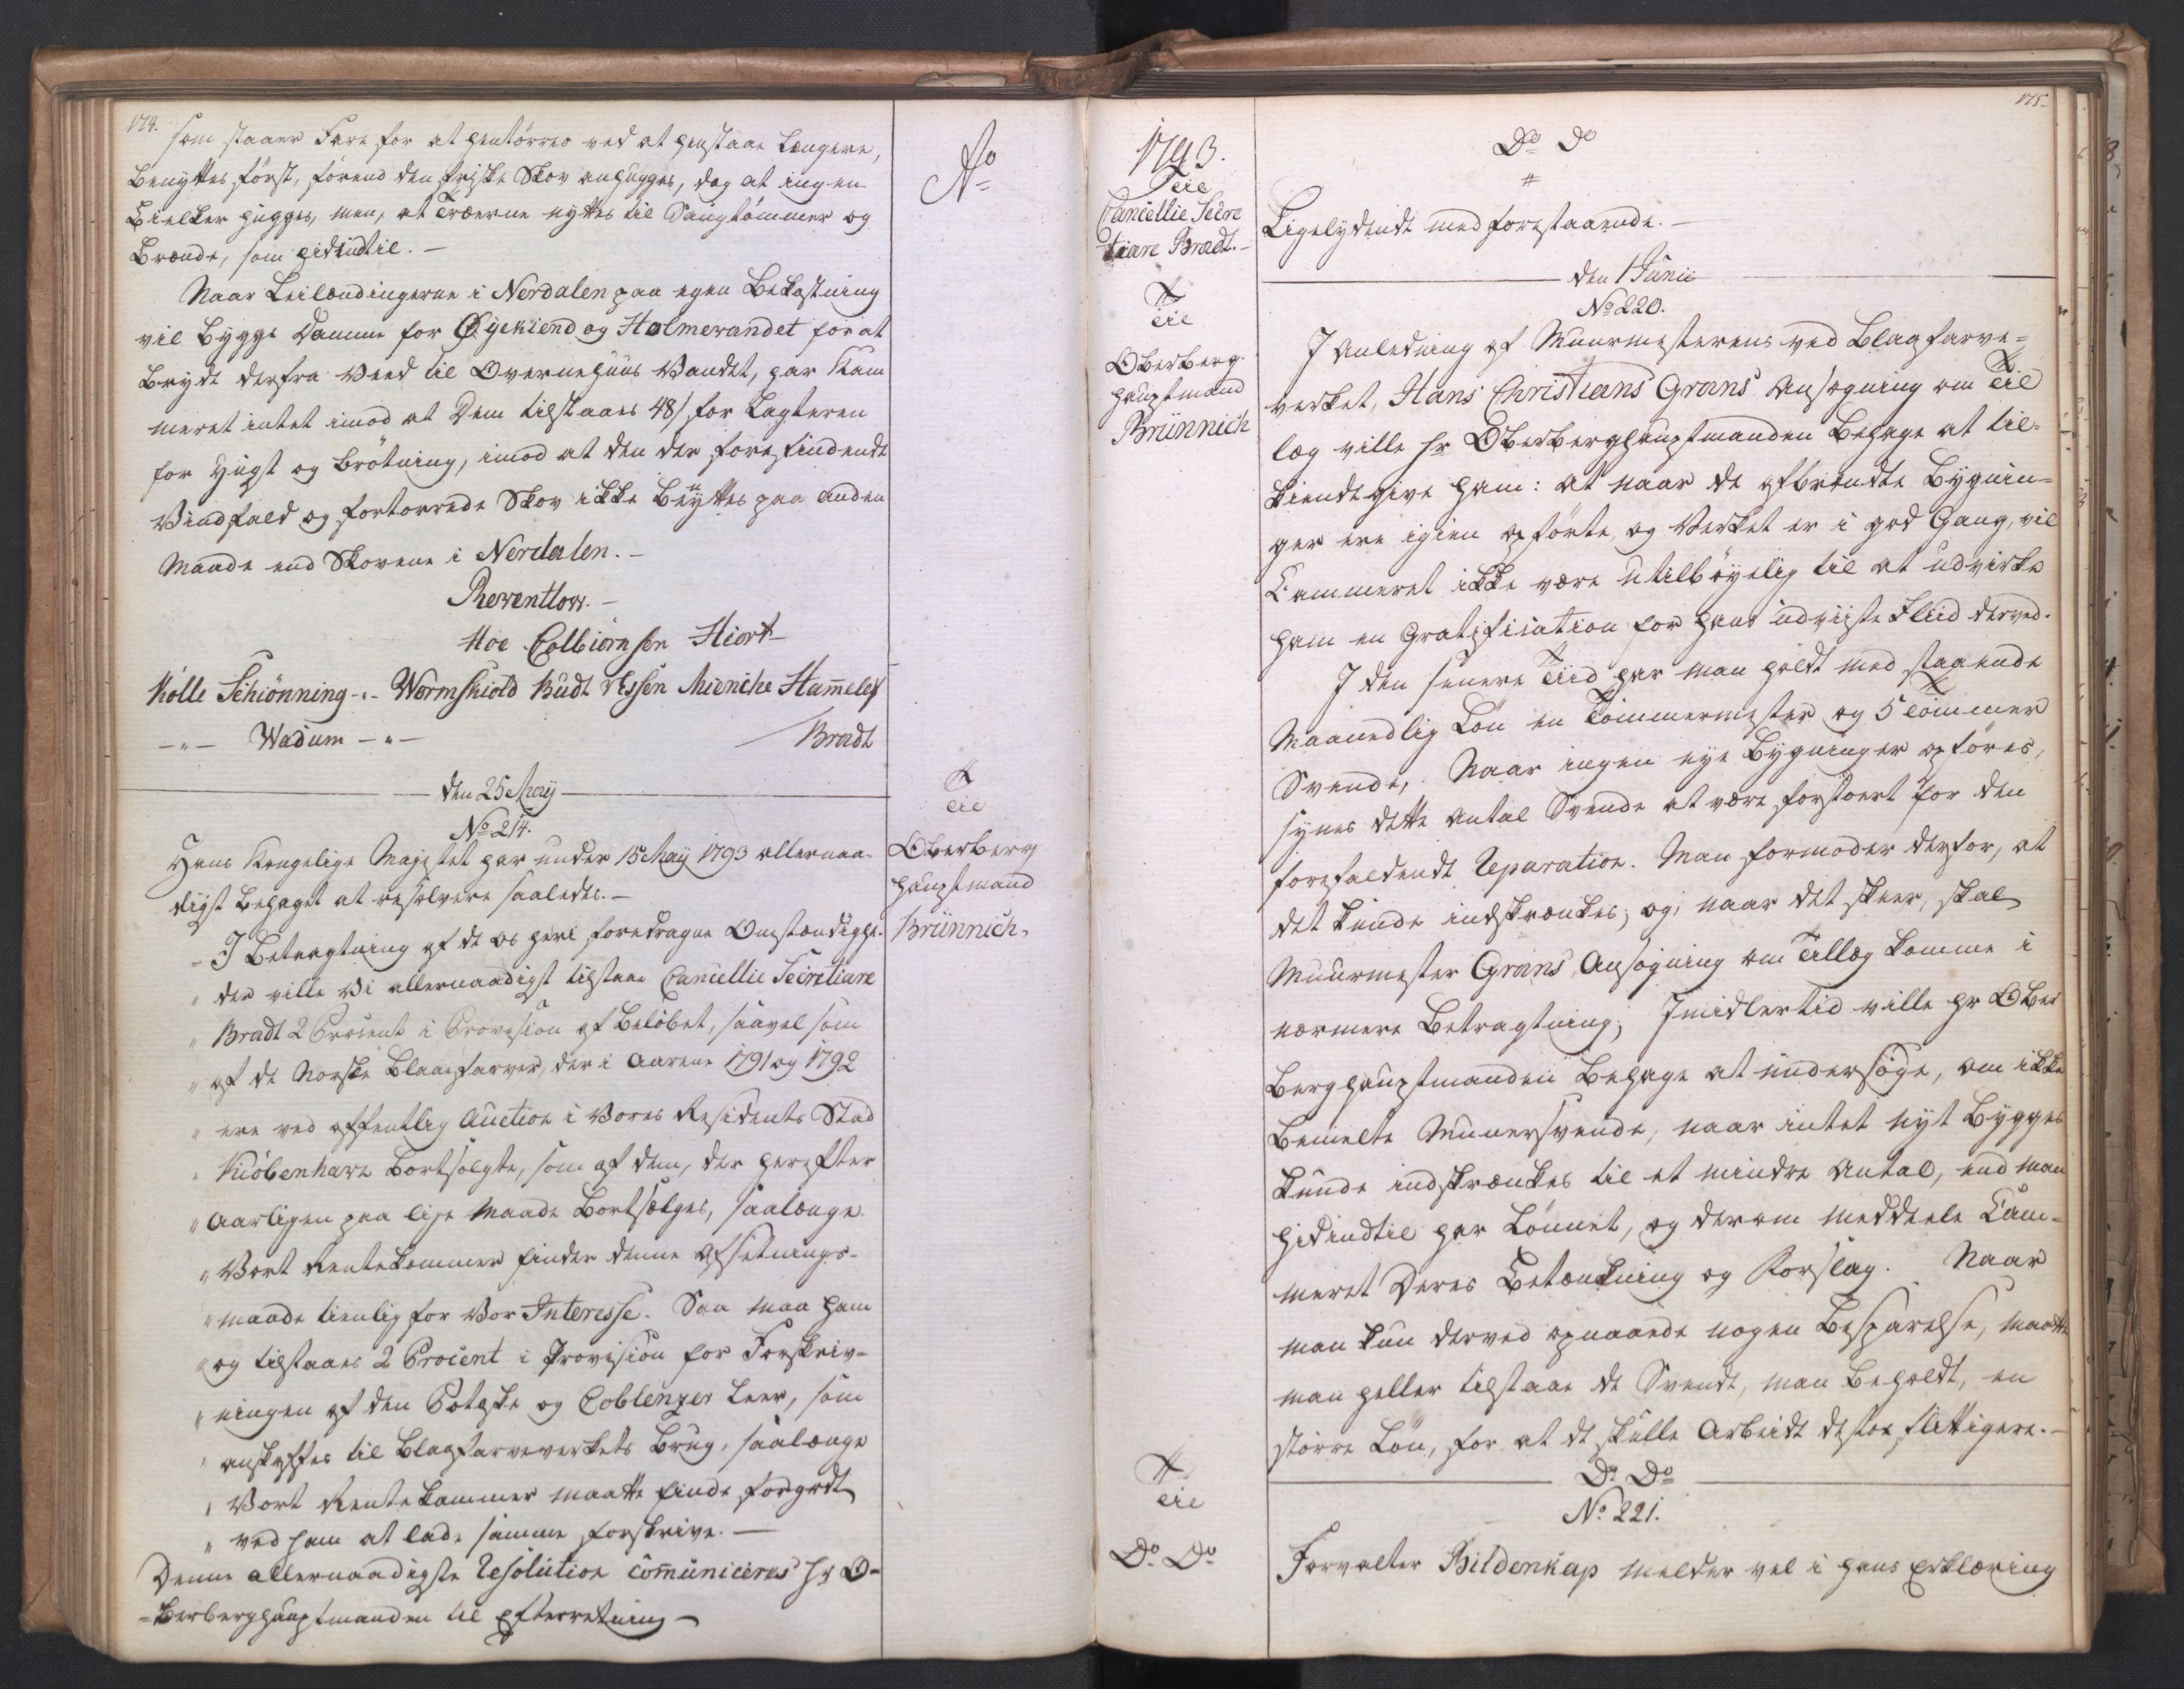 174.
som staaer Fare for at hentörres ved at henstaae Længere,
benyttes först, förend den friske Skov anhugges, dog at ingen
Bielker hugges, men, at Træerne nyttes til Saugtömmer og
Brænde, som hidindtil. —
Naar Leilændingerne i Nerdalen paa egen Bekostning
vil bygge Damme for Øyekiend og Holmevandet for at
bryde derfra Veed til Overnehuus Vandet, har Kam
meret intet imod at Dem tilstaaes 48/ for Lagteren
for Hugst og Brötning, imod at den der forefindende
Vindfald og fortorrede Skov ikke benyttes paa anden
Maade end Skovene i Nerdalen. —
Reventlow. —
Hoe Colbiörnsen Hiort —
Kölle Schiönning -„- Wormskiold Budtz Essen Mienche Hammeleff
—„— Wadum —„—
Bradt
den 25 Maÿ
No 214.
Hans Kongelige Majestet har under 15 Maÿ 1793 allernaa-
digst behaget at resolvere saaledes. —
„ I Betragtning af de os heri foredragne Omstændighe-
„ der ville Vi allernaadigst tilstaae Cancellie Secretaire
„ Bradt 2 Procent i Provision af Belöbet, saavel som
„ af de Norske Blaaefarver, der i Aarene 1791 og 1792
„ ere ved offentlig Auction i Vores Residents Stad
„ Kiöbenhavn bortsolgte, som af dem, der herefter
„ Aarligen paa lige Maade bortsælges, saalænge
„ Vort Rentekammer finder denne Afsetnings-
„ maade tienlig for Vor Interesse. Saa maa ham
„ og tilstaaes 2 Procent i Provision for Forskriv-
„ ningen af den Potaske og Coblenzer Leer, som
„ anskaffes til Blaafarveverkets Brug, saalænge
„ Vort Rentekammer maatte finde forgodt
„ ved ham at lade samme forskrive. —
Denne allernaadigste Resolution communiceres Hr O-
=berberghauptmanden til Efterretning —
Ao
Til
Oberberg
hauptmand
Brünnich.
1793.
Til
Cancellie Secre
taire Bradt. —
Til
Oberberg-
hauptmand
Brünnich
Til
Do Do
175.
Do Do
Ligelydende med forestaaende. —
den 1 Junii
No 220.
I Anledning af Muurmesterens ved Blaafarve=
verket, Hans Christians Grans Ansøgning om Til
læg ville Hr Oberberghauptmanden behage at til-
kiendegive ham: at naar de afbrendte Bygnin-
ger ere igien opförte, og Verket er i god Gang, vil
Cammeret ikke være utilböyelig til at udvirke
ham en Gratification for hans udviiste Fliid derved.
I den senere Tiid har man holdt med staaende
Maanedlig Lön en Tömmermester og 5 Tömmer
Svende, Naar ingen nye Bygninger opföres,
synes dette Antal Svende at være forstoert for den
forefaldende Reparation. Man formoder derfor, at
det kunde indskrænkes; og, naar det skeer, skal
Muurmester Grans Ansøgning om Tillæg komme i
nærmere Betragtning; Imidlertid ville Hr Ober
berghauptmanden behage at undersöge, om ikke
bemelte Muuersvende, naar intet nyt bygges
kunde indskrænkes til et mindre Antal, end man
hidindtil har Lönnet, og derom meddeele Cam-
meret Deres Betænkning og Forslag. Naar
man kun derved opnaaede nogen Besparelse, maatte
man heller tilstaae de Svende, man beholdt, en
större Lön, for at de skulle Arbeide destoe flittigere. —
Do Do
No 221.
Forvalter Bildenkap melder vel i hans Erklæring